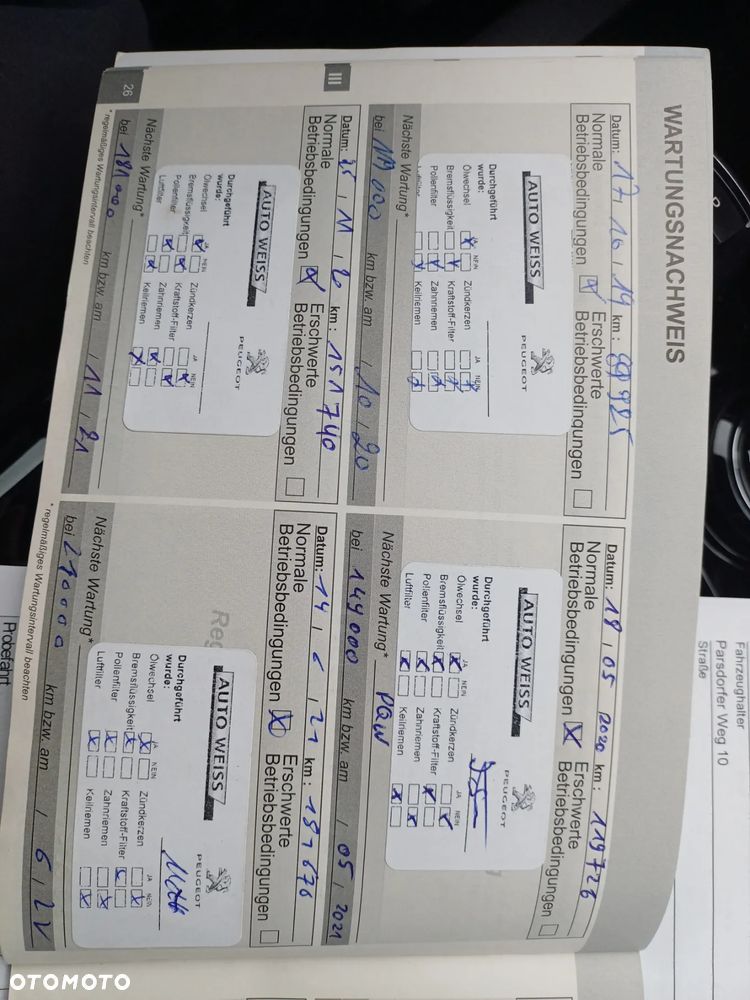 WARTUNGSNACHWEIS
Datum: 17, 10, 19 km: 89 925
Normale Betriebsbedingungen Erschwerte Betriebsbedingungen
AUTO WEISS PEUGEOT
Durchgeführt wurde:
JA NEIN JA NEIN
Ölwechsel Zündkerzen
Bremsflüssigkeit Kraftstoff-Filter
Pollenfilter Zahnriemen
Luftfilter Keilriemen
Nächste Wartung*
bei km bzw. am , 10, 20
Datum: 18, 05 2020 km: 119726
Normale Betriebsbedingungen Erschwerte Betriebsbedingungen
AUTO WEISS PEUGEOT
Durchgeführt wurde:
JA NEIN JA NEIN
Ölwechsel Zündkerzen
Bremsflüssigkeit Kraftstoff-Filter
Pollenfilter Zahnriemen
Luftfilter Keilriemen
Nächste Wartung*
bei 149000 km bzw. am , 05, 2021
III
Datum: 25, 11, 20 km: 151740
Normale Betriebsbedingungen Erschwerte Betriebsbedingungen
AUTO WEISS PEUGEOT
Durchgeführt wurde:
JA NEIN JA NEIN
Ölwechsel Zündkerzen
Bremsflüssigkeit Kraftstoff-Filter
Pollenfilter Zahnriemen
Luftfilter Keilriemen
Nächste Wartung*
bei 181000 km bzw. am , 11, 21
* regelmäßiges Wartungsintervall beachten
26
Datum: 14, , 21 km:
Normale Betriebsbedingungen Erschwerte Betriebsbedingungen
AUTO WEISS PEUGEOT
Durchgeführt wurde:
JA NEIN JA NEIN
Ölwechsel Zündkerzen
Bremsflüssigkeit Kraftstoff-Filter
Pollenfilter Zahnriemen
Luftfilter Keilriemen
Nächste Wartung*
bei 210000 km bzw. am , 6, 2
* regelmäßiges Wartungsintervall beachten
Fahrzeughalter
Parsdorfer Weg 10
Straße
Probefahrt
OTOMOTO